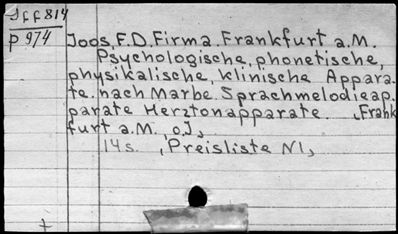 Iff814
p 974
Joos, F.D. Firma. Frankfurt a.M.
Psychologische, phonetische,
physikalische, klinische Appara-
te. nach Marbe. Sprachmelodieap.
parate Herztonapparate. , Frank
furt a.M., o.J,
14s. , Preisliste N1,